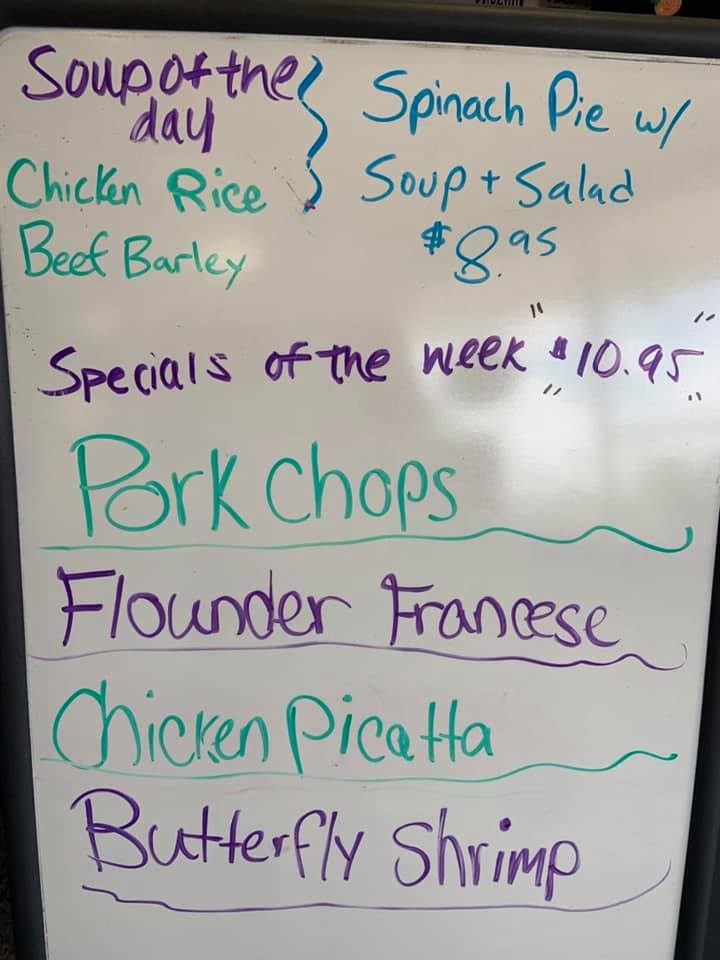 Soup of the
day
Chicken Rice
Beef Barley
Spinach Pie w/
Soup + Salad
$8.95
Specials of the week "$10.95"
Pork Chops
Flounder Francese
Chicken Picatta
Butterfly Shrimp